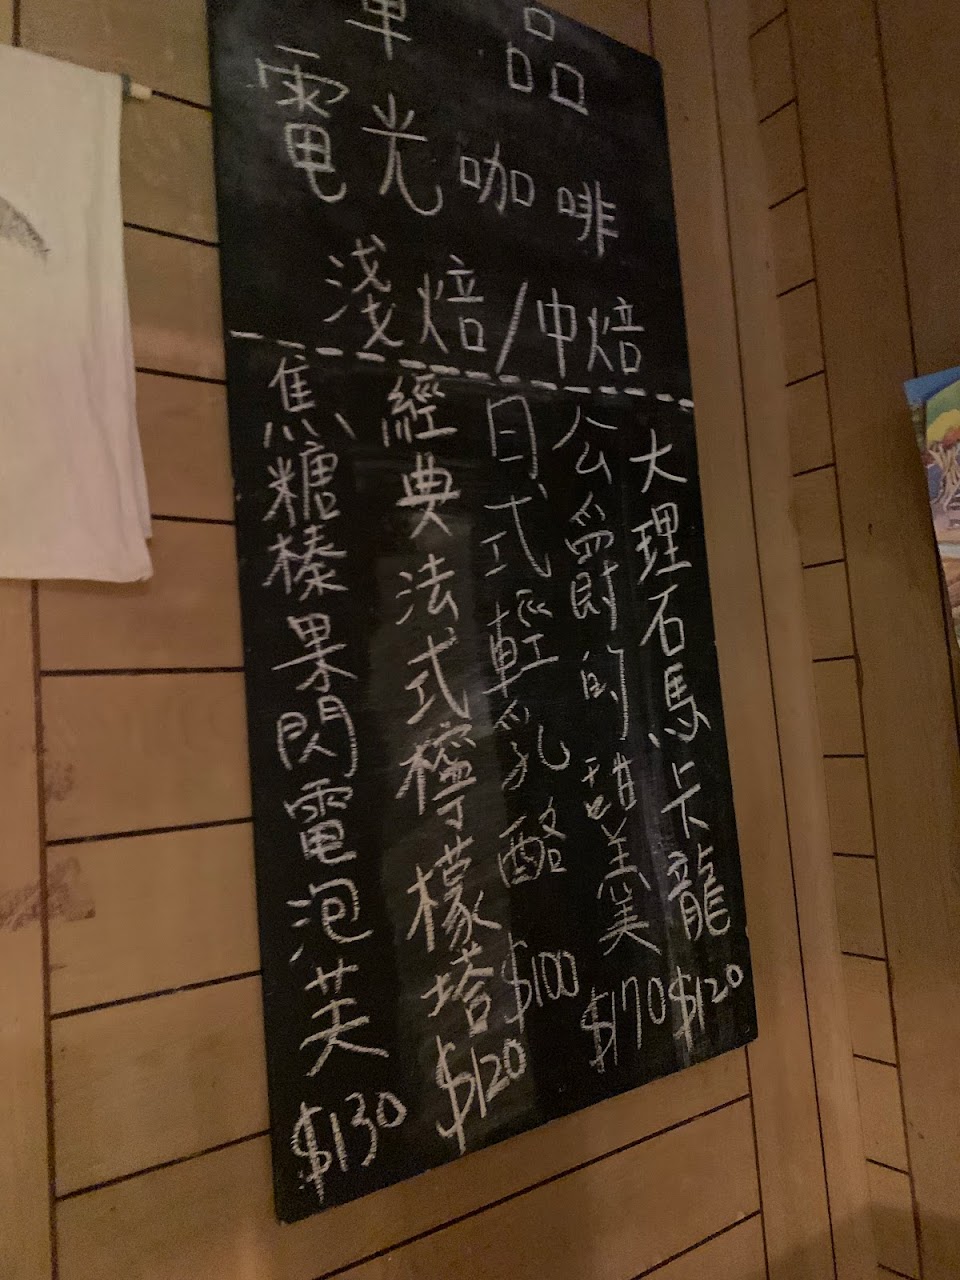 單品
電光咖啡
淺焙/中焙
大理石馬卡龍 $120
公爵的甜羹 $170
日式輕乳酪 $100
經典法式檸檬塔 $120
焦糖榛果閃電泡芙 $130